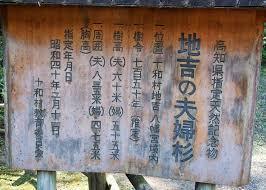 高知県指定天然記念物
地吉の夫婦杉
一位置 十和村地吉八幡宮境内
一樹令 七百五十年(推定)
一樹高(夫)六十米(婦)五十五米
一周囲(夫)八
胸高
指定年月日
昭和四十年
十和村教育委員会